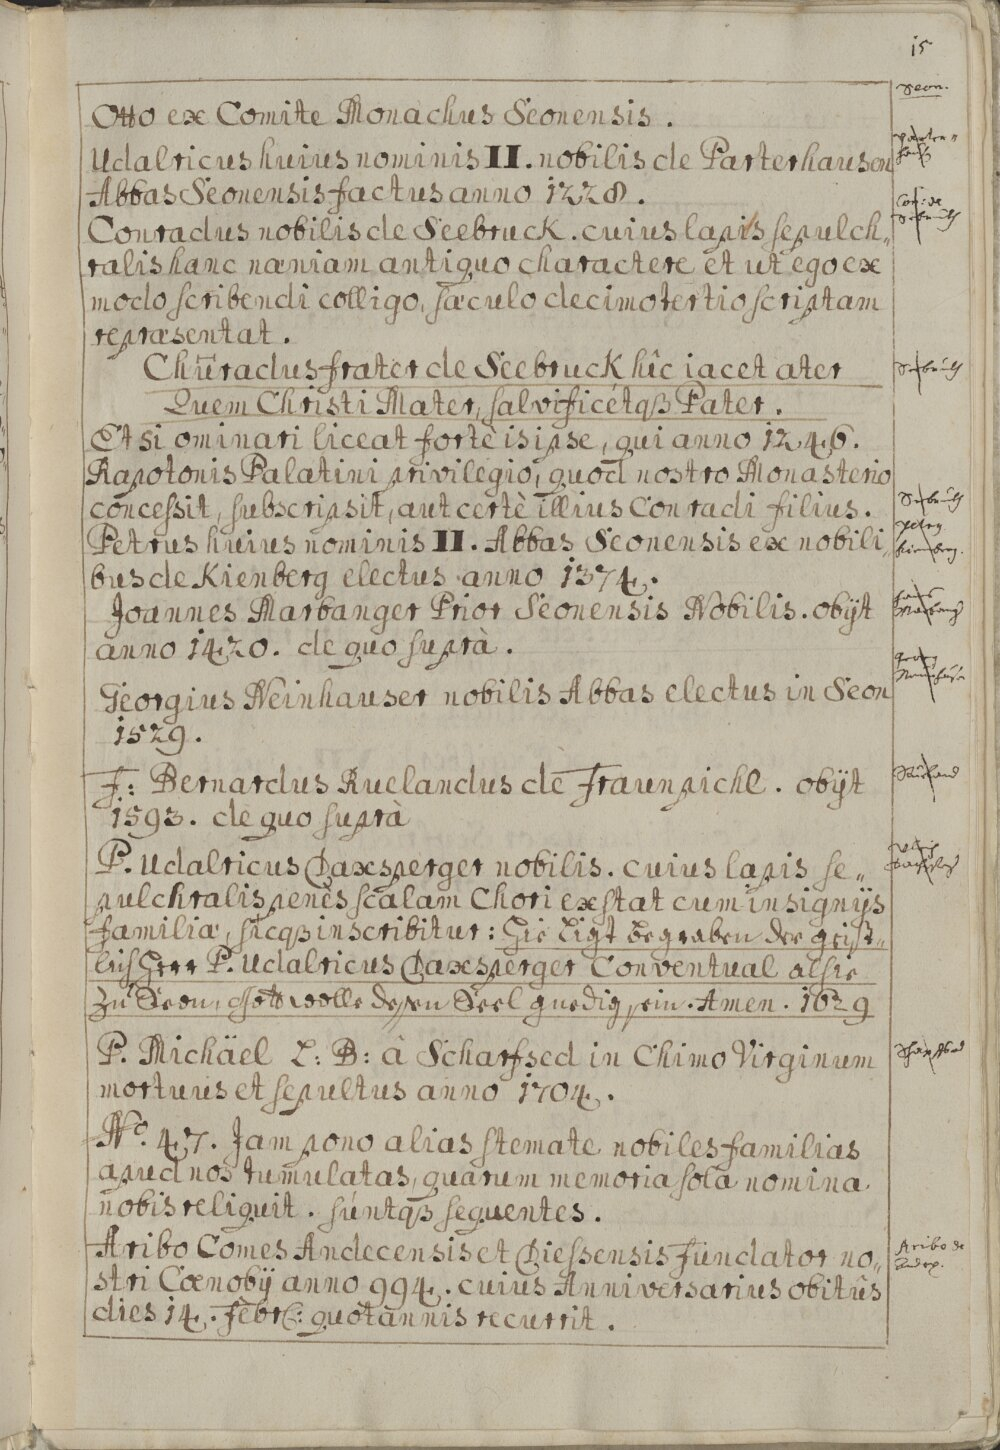 15
Otto ex Comite Monachus Seonensis.
Udalricus huius nominis II. nobilis de Parterhausen
Abbas Seonensis factus anno 1228.
Conradus nobilis de Seebruck. cuius lapis sepulch„
ralis hanc næniam antiquo charactere et ut ego ex
modo scribendi colligo, sæculo decimotertio scriptam
repræsentat.
Chunradus frater de Seebruck hîc iacet ater
Quem Christi Mater, salvificétqß Pater.
Et si ominari liceat fortè is ipse, qui anno 1246.
Rapotonis Palatini privilegio, quod nostro Monasterio
concessit, subscripsit, aut certè illius Conradi filius.
Petrus huius nominis II. Abbas Seonensis ex nobili„
bus de Kienberg electus anno 1374.
Joannes Marbanger Prior Seonensis Nobilis. obijt
anno 1420. de quo suprà.
Georgius Neinhauser nobilis Abbas electus in Seon
1529.
F: Bernardus Ruelandus de Fraunpichl. obijt
1593. de quo suprà
P. Udalricus Daxsperger nobilis. cuius lapis se„
pulchralis penès scalam Chori exstat cum insignijs
familiæ, sicqß inscribitur: Hie Ligt begraben der geist„
lich Herr P. Udalricus Daxsperger Conventual alhie
zu Seon, Gott wolle dessen Seel gnedig sein. Amen. 1629
P. Michäel L: B: à Scharfsed in Chimo Virginum
mortuus et sepultus anno 1704.
No. 47. Jam pono alias stemate nobiles familias
apud nos tumulatas, quarum memoria sola nomina
nobis reliquit. súntqß sequentes.
Aribo Comes Andecensis et Diessensis Fundator no„
stri Cœnobij anno 994. cuius Anniversarius obitûs
dies 14. Febr: quotannis recurrit.
Seon.
Seebruck
Seebruck
Kienberg.
Aribo de